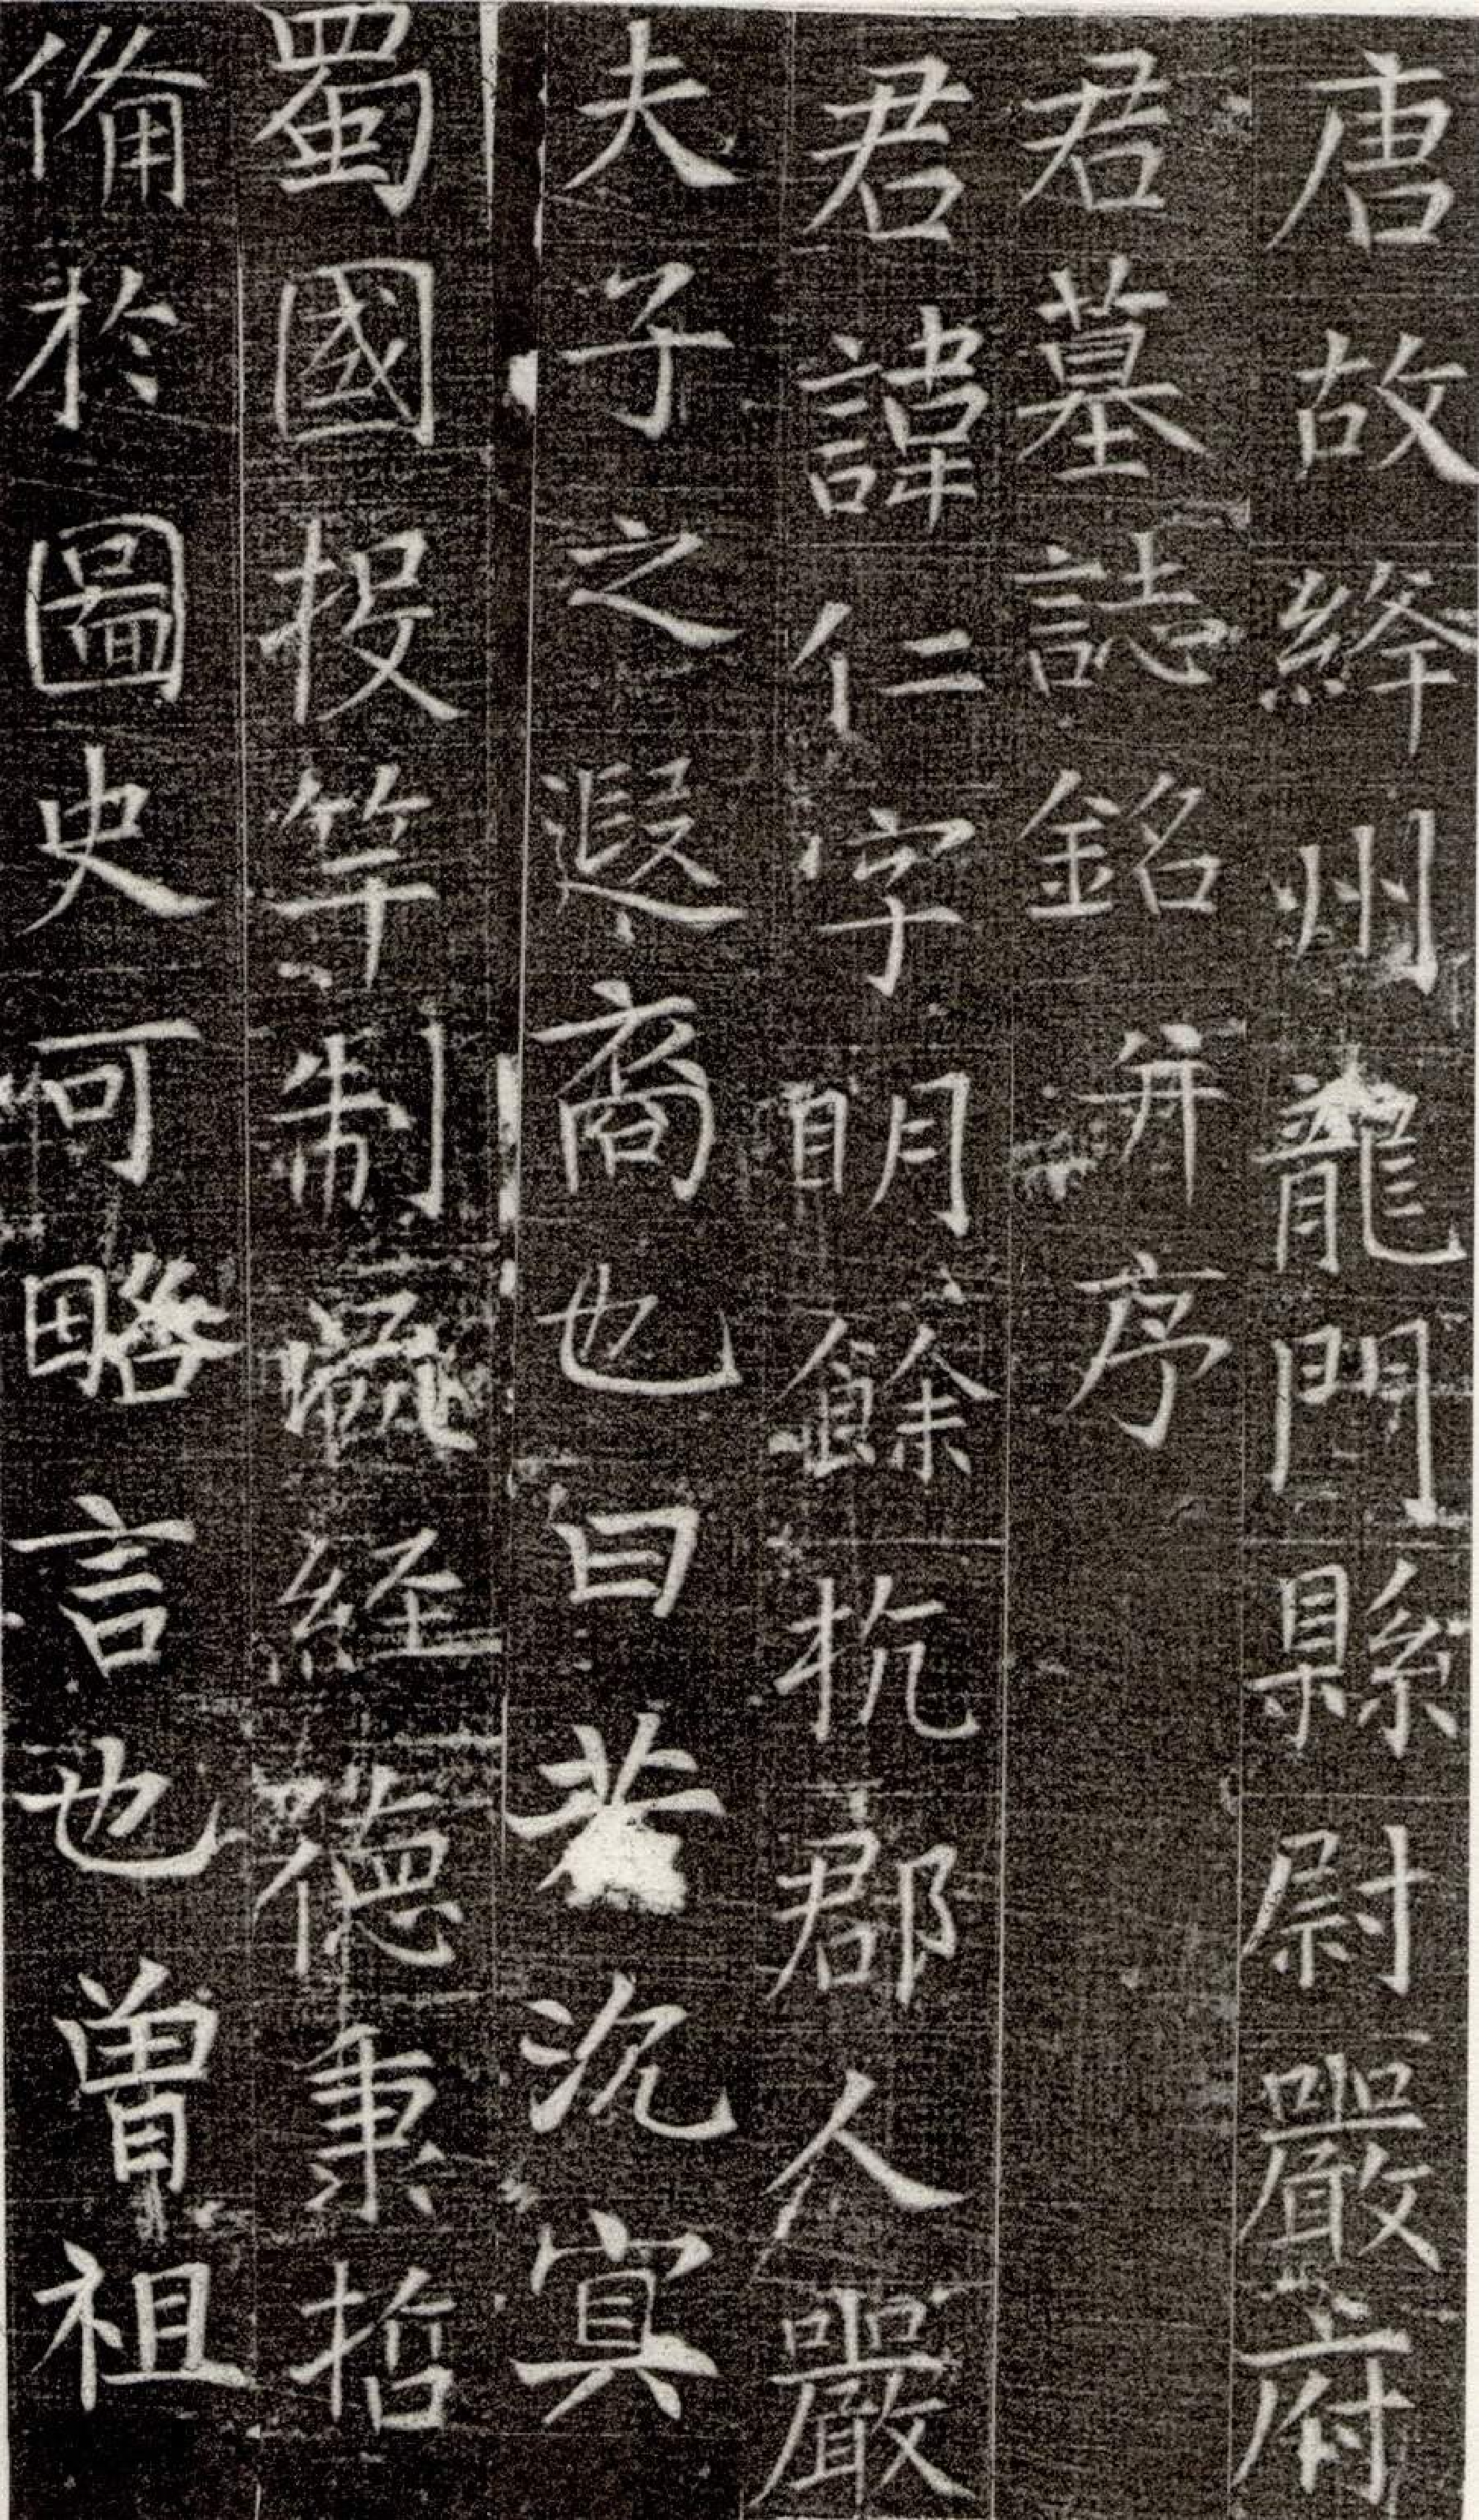 唐故絳州龍門縣尉嚴府
君墓誌銘并序
君諱仁字明餘杭郡人嚴
夫子之遐裔也曰若沉冥
蜀國投竿制瀛経德秉哲
俻於圖史可略言也曾祖